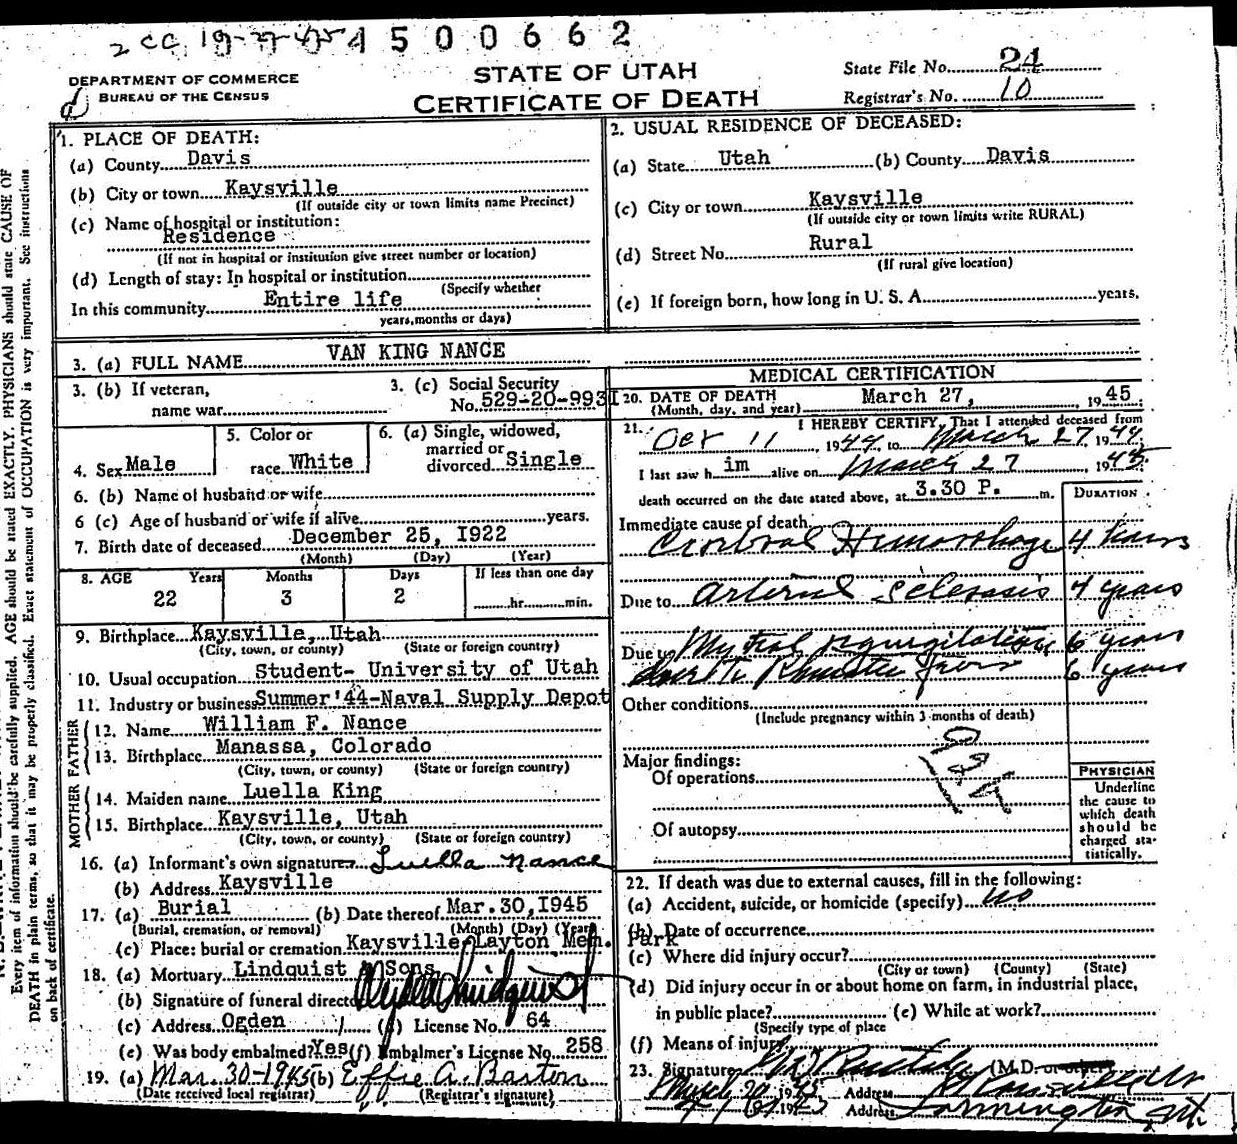 4500662
STATE OF UTAH
CERTIFICATE OF DEATH
DEPARTMENT OF COMMERCE
BUREAU OF THE CENSUS
State File No. 24
Registrar's No. 10
1. PLACE OF DEATH:
(a) County Davis
(b) City or town Kaysville
(If outside city or town limits name Precinct)
(c) Name of hospital or institution:
Residence
(If not in hospital or institution give street number or location)
(d) Length of stay: In hospital or institution
(Specify whether
In this community Entire life
years, months or days)
2. USUAL RESIDENCE OF DECEASED:
(a) State Utah (b) County Davis
(c) City or town Kaysville
(If outside city or town limits write RURAL)
(d) Street No. Rural
(If rural give location)
(e) If foreign born, how long in U. S. A. years.
3. (a) FULL NAME VAN KING NANCE
3. (b) If veteran,
name war
3. (c) Social Security
No. 529-20-9931
4. Sex Male
5. Color or
race White
6. (a) Single, widowed,
married or
divorced Single
6. (b) Name of husband or wife
6 (c) Age of husband or wife if alive years.
7. Birth date of deceased December 25, I922
(Month) (Day) (Year)
8. AGE Years Months Days If less than one day
22 3 2 hr. min.
9. Birthplace Kaysville, Utah
(City, town, or county) (State or foreign country)
10. Usual occupation Student- University of Utah
11. Industry or business Summer'44-Naval Supply Depot
FATHER
12. Name William F. Nance
13. Birthplace Manassa, Colorado
(City, town, or county) (State or foreign country)
MOTHER
14. Maiden name Luella King
15. Birthplace Kaysville, Utah
(City, town, or county) (State or foreign country)
16. (a) Informant's own signature Luella Nance
(b) Address Kaysville
17. (a) Burial (b) Date thereof Mar.30,I945
(Burial, cremation, or removal) (Month) (Day) (Year)
(c) Place: burial or cremation Kaysville Layton Mem. Park
18. (a) Mortuary Lindquist & Sons
(b) Signature of funeral director
(c) Address Ogden (d) License No. 64
(e) Was body embalmed? Yes (f) Embalmer's License No. 258
19. (a) Mar. 30-1945 (b) Effie A. Barton
(Date received local registrar) (Registrar's signature)
MEDICAL CERTIFICATION
20. DATE OF DEATH March 27, 1945
(Month, day, and year)
21. I HEREBY CERTIFY, That I attended deceased from
Oct 11 1944 to March 27 19
I last saw him alive on March 27, 1945
death occurred on the date stated above, at 3.30 P. m.
DURATION
Immediate cause of death
Cerebral Hemorrhage 4 hours
Due to Arterial Sclerosis 4 years
Due to Mytral regurgitation 6 years
due to Rhumatic fever 6 years
Other conditions
(Include pregnancy within 3 months of death)
Major findings:
Of operations
Of autopsy
PHYSICIAN
Underline
the cause to
which death
should be
charged sta-
tistically.
22. If death was due to external causes, fill in the following:
(a) Accident, suicide, or homicide (specify) No
(b) Date of occurrence
(c) Where did injury occur?
(City or town) (County) (State)
(d) Did injury occur in or about home on farm, in industrial place,
in public place? (e) While at work?
(Specify type of place
(f) Means of injury
23. Signature (M.D. or other)
Address
Address Farmington, Ut.
Every item of information should be carefully supplied. AGE should be stated EXACTLY. PHYSICIANS should state CAUSE OF
DEATH in plain terms, so that it may be properly classified. Exact statement of OCCUPATION is very important. See instructions
on back of certificate.